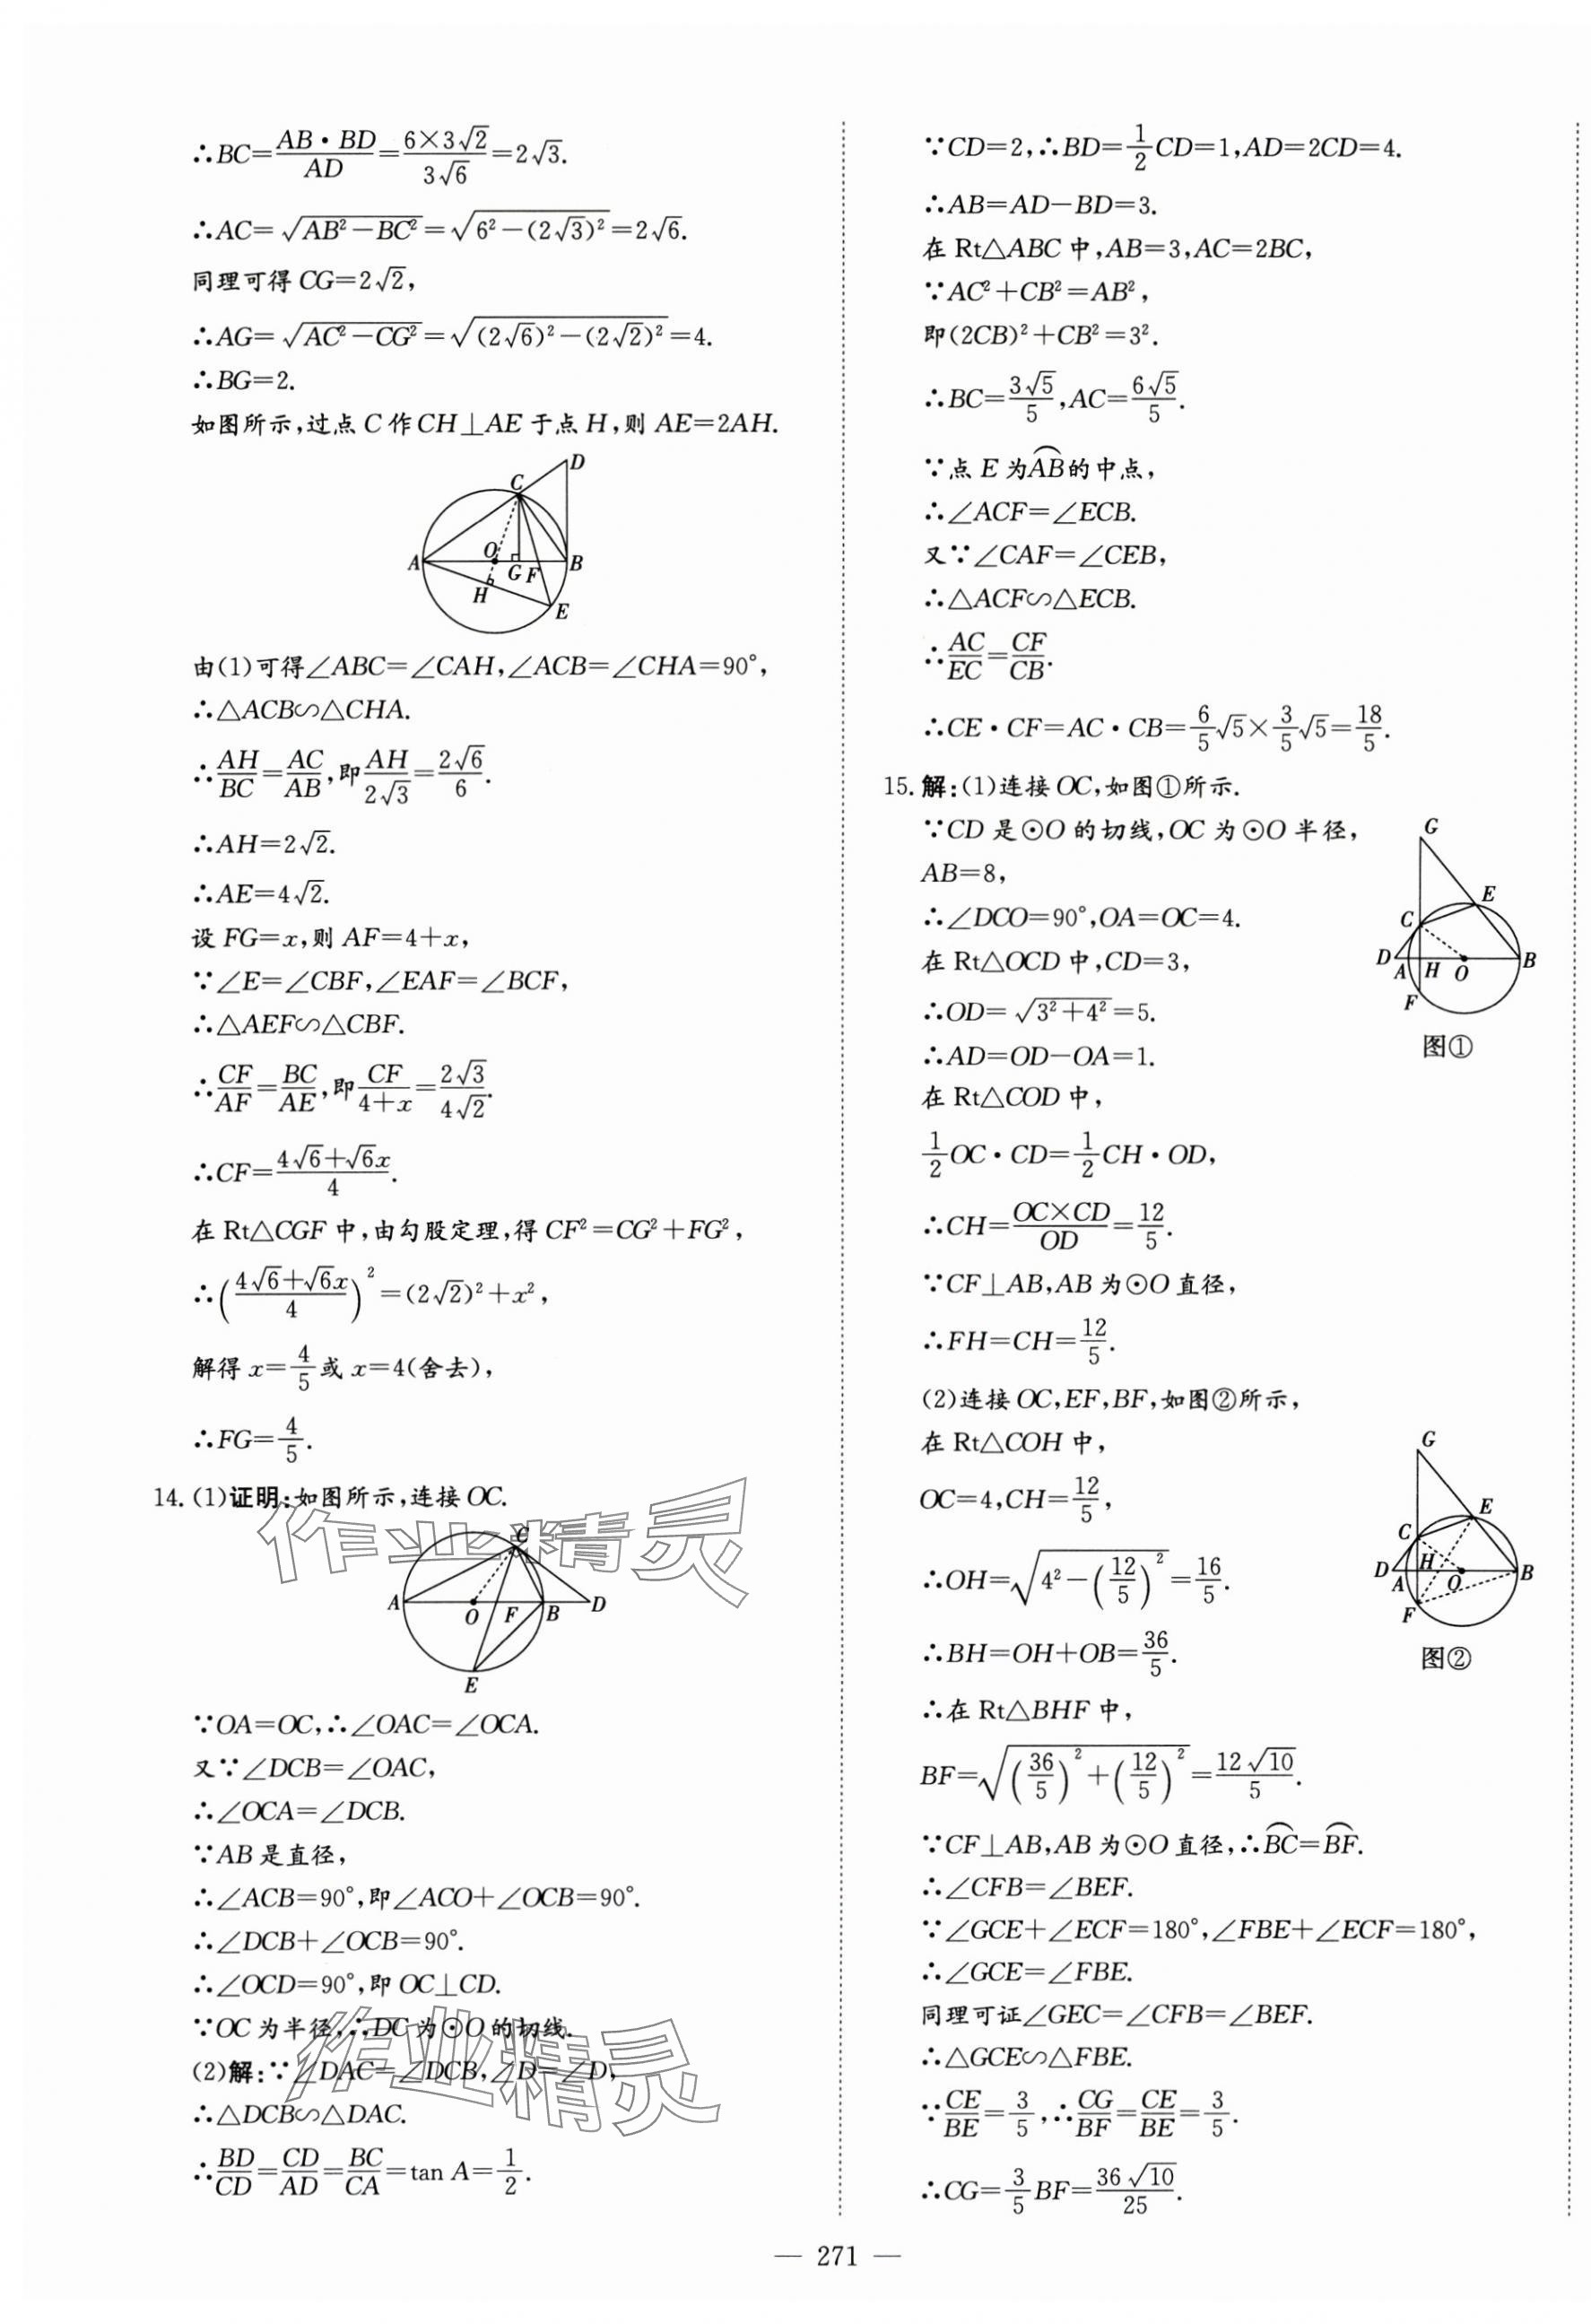 ∴BC=AB·BD/AD=6×3√2/3√6=2√3.
∴AC=√(AB²−BC²)=√(6²−(2√3)²)=2√6.
同理可得 CG=2√2,
∴AG=√(AC²−CG²)=√((2√6)²−(2√2)²)=4.
∴BG=2.
如图所示,过点 C 作 CH⊥AE 于点 H,则 AE=2AH.
D
C
A
O
G
F
B
H
E
由(1)可得∠ABC=∠CAH,∠ACB=∠CHA=90°,
∴△ACB∽△CHA.
∴AH/BC=AC/AB,即AH/2√3=2√6/6.
∴AH=2√2.
∴AE=4√2.
设 FG=x,则 AF=4+x,
∵∠E=∠CBF,∠EAF=∠BCF,
∴△AEF∽△CBF.
∴CF/AF=BC/AE,即CF/(4+x)=2√3/4√2.
∴CF=(4√6+√6x)/4.
在 Rt△CGF 中,由勾股定理,得 CF²=CG²+FG²,
∴((4√6+√6x)/4)²=(2√2)²+x²,
解得 x=4/5或 x=4(舍去),
∴FG=4/5.
14. (1)证明:如图所示,连接 OC.
C
A
O
F
B
D
E
∵OA=OC,∴∠OAC=∠OCA.
又∵∠DCB=∠OAC,
∴∠OCA=∠DCB.
∵AB 是直径,
∴∠ACB=90°,即∠ACO+∠OCB=90°.
∴∠DCB+∠OCB=90°.
∴∠OCD=90°,即 OC⊥CD.
∵OC 为半径,∴DC 为⊙O 的切线.
(2)解:∵∠DAC=∠DCB,∠D=∠D,
∴△DCB∽△DAC.
∴BD/CD=CD/AD=BC/CA=tan A=1/2.
∵CD=2,∴BD=1/2CD=1,AD=2CD=4.
∴AB=AD−BD=3.
在 Rt△ABC 中,AB=3,AC=2BC,
∵AC²+CB²=AB²,
即(2CB)²+CB²=3².
∴BC=3√5/5,AC=6√5/5.
∵点 E 为⌒AB的中点,
∴∠ACF=∠ECB.
又∵∠CAF=∠CEB,
∴△ACF∽△ECB.
∴AC/EC=CF/CB.
∴CE·CF=AC·CB=6/5√5×3/5√5=18/5.
15. 解:(1)连接 OC,如图①所示.
∵CD 是⊙O 的切线,OC 为⊙O 半径,
AB=8,
∴∠DCO=90°,OA=OC=4.
在 Rt△OCD 中,CD=3,
∴OD=√(3²+4²)=5.
∴AD=OD−OA=1.
在 Rt△COD 中,
1/2OC·CD=1/2CH·OD,
∴CH=OC×CD/OD=12/5.
∵CF⊥AB,AB 为⊙O 直径,
∴FH=CH=12/5.
G
E
C
D
A
H
O
B
F
图①
(2)连接 OC,EF,BF,如图②所示,
在 Rt△COH 中,
OC=4,CH=12/5,
∴OH=√(4²−(12/5)²)=16/5.
∴BH=OH+OB=36/5.
∴在 Rt△BHF 中,
BF=√((36/5)²+(12/5)²)=12√10/5.
G
E
C
D
A
H
O
B
F
图②
∵CF⊥AB,AB 为⊙O 直径,∴⌒BC=⌒BF.
∴∠CFB=∠BEF.
∵∠GCE+∠ECF=180°,∠FBE+∠ECF=180°,
∴∠GCE=∠FBE.
同理可证∠GEC=∠CFB=∠BEF.
∴△GCE∽△FBE.
∵CE/BE=3/5,∴CG/BF=CE/BE=3/5.
∴CG=3/5BF=36√10/25.
— 271 —
作业精灵
作业精灵